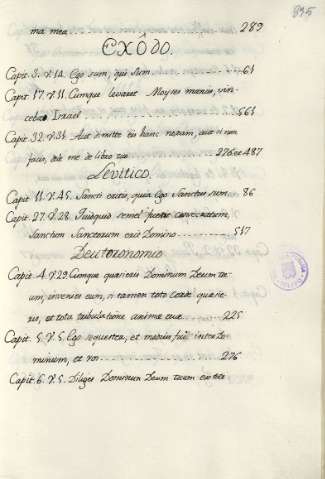 895
ma mea. 289
EXÔDO.
Capit. 3. V. 14. Ego sum, qui sum 61
Capit. 17. V. 11. Cumque levaret Moyses manus, vin-
cebat Israel 561
Capit. 32. V. 31. Aut dimitte eis hanc noxam, aut si non
facis, dele me de libro tuo 276 et 487
Levitico.
Capit. 11. V. 45. Sancti eritis, quia Ego Sanctus sum. 86
Capit. 27. V. 28. Quidquid semel fuerit consecratum,
Sanctum Sanctorum erit Domino 517
Deuteronomio
Capit. 4. V. 29. Cumque quaesieris Dominum Deum tu-
um, invenies eum, si tamen toto corde quaesie-
ris, et tota tribulatione animae tuae. 225
Capit. 5. V. 5. Ego sequester, et medius fui inter Do-
minum, et vos 276
Capit. 6. V. 5. Diliges Dominum Deum tuum ex